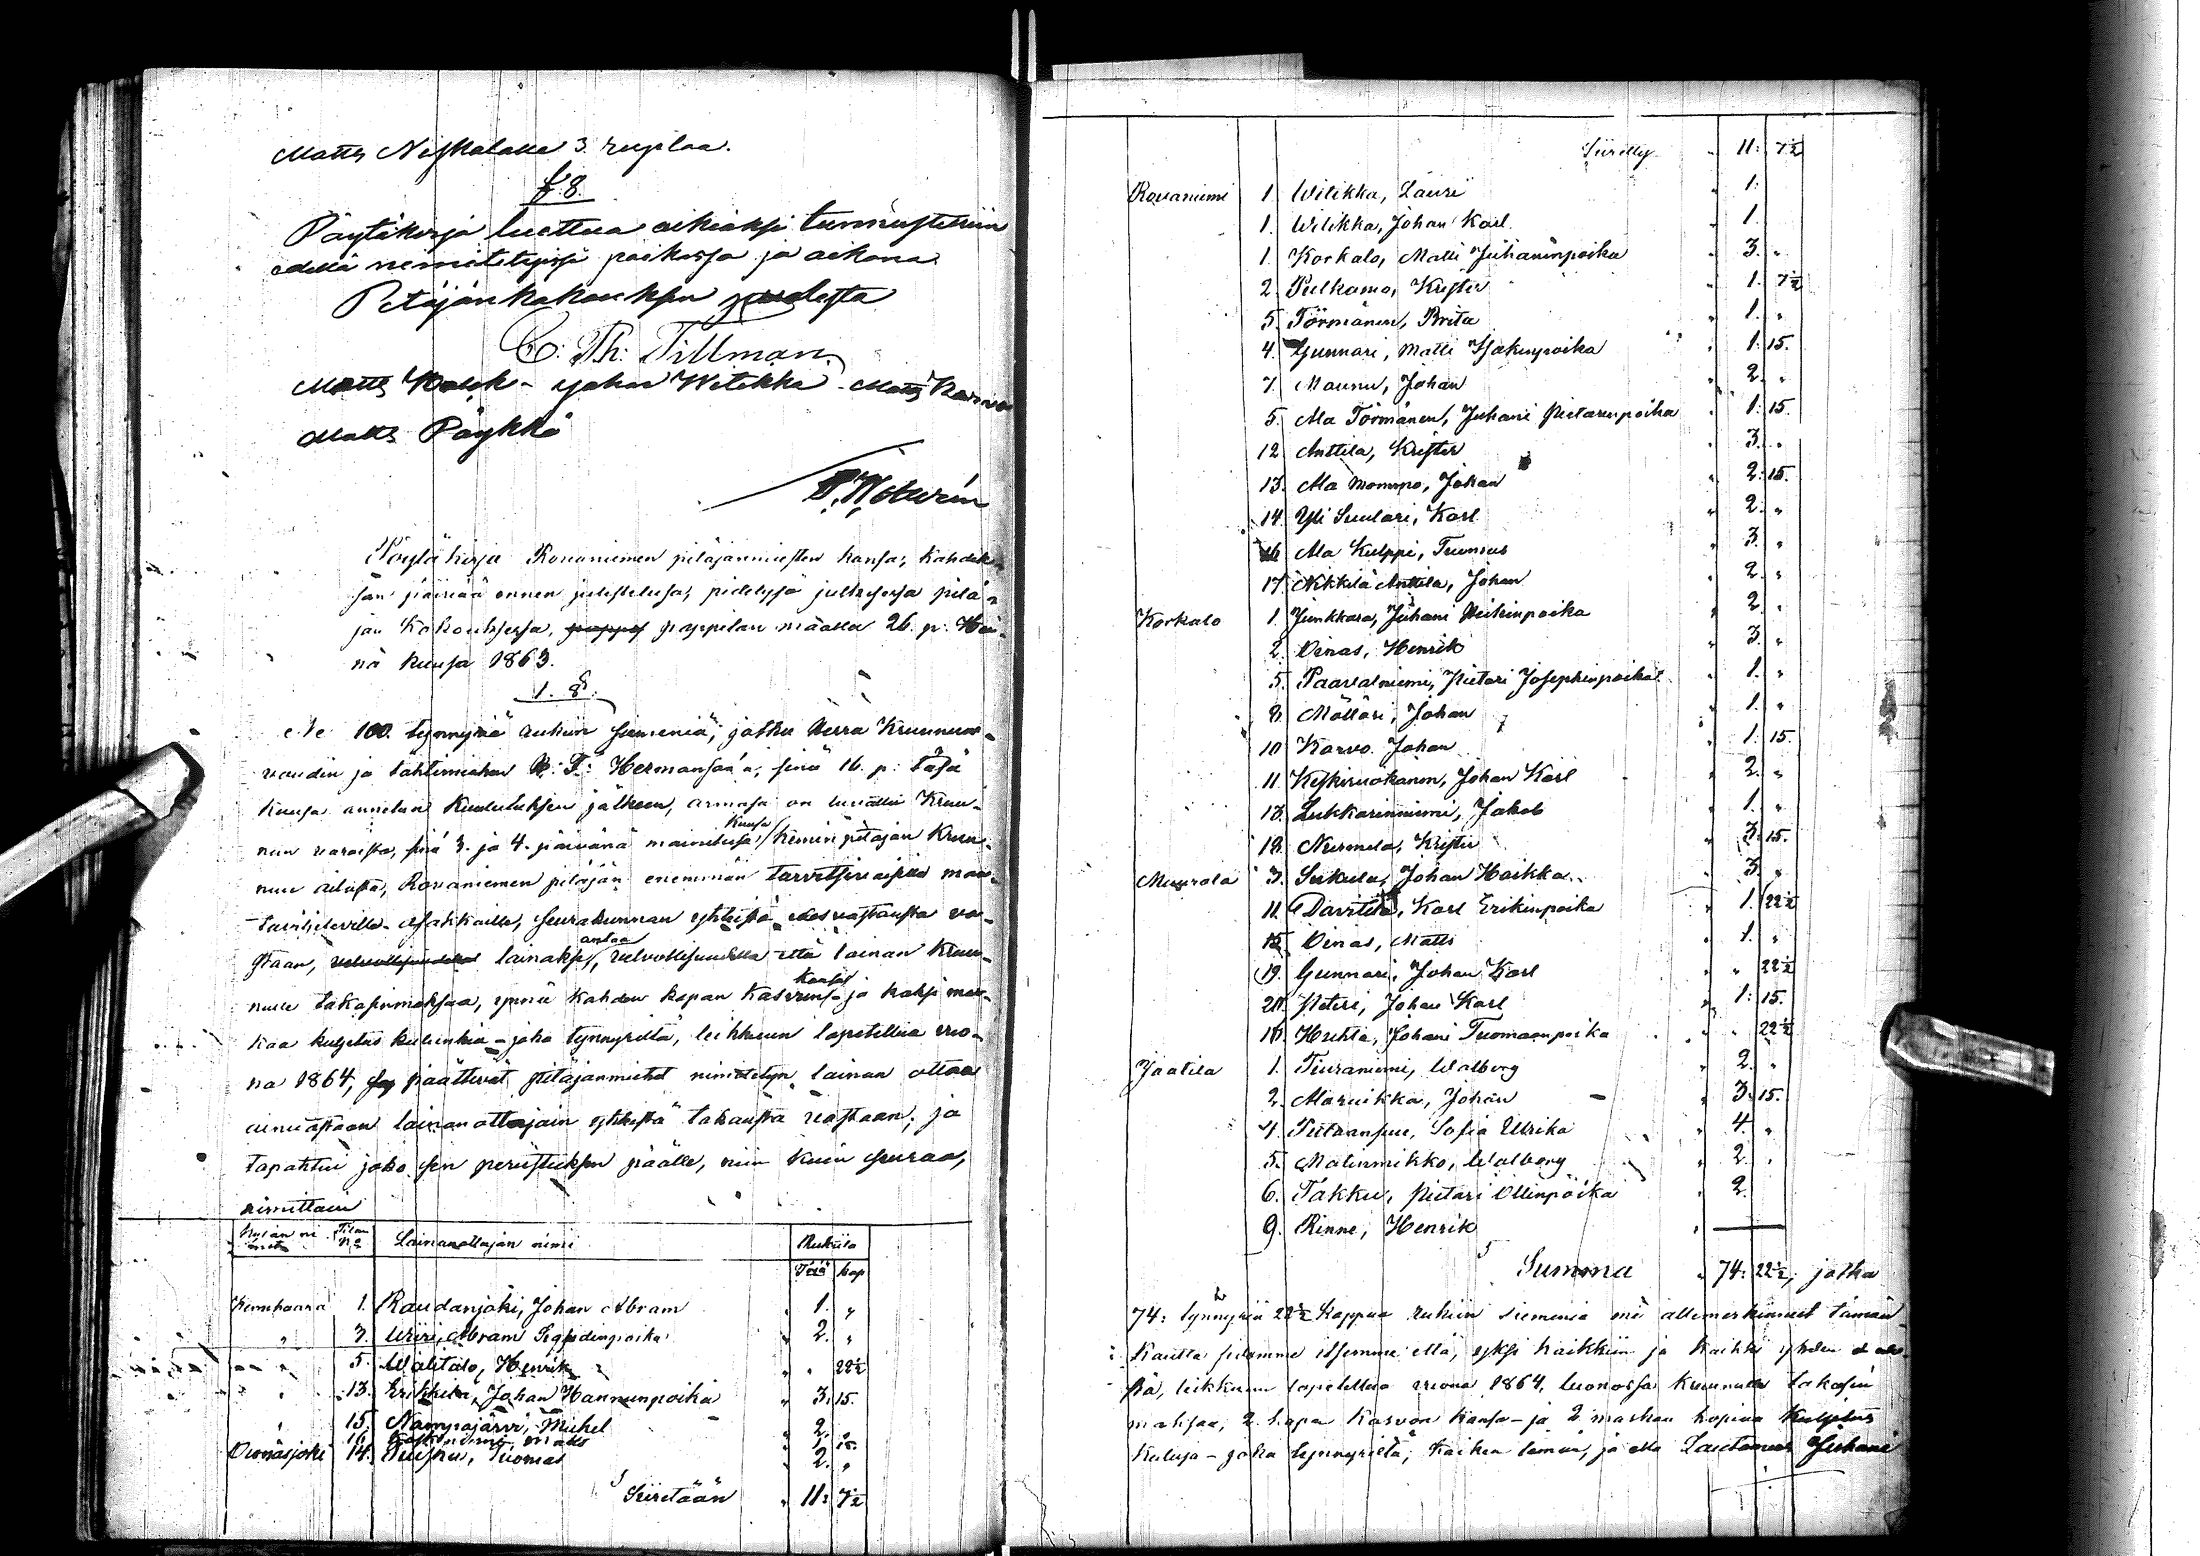 Matts Niskalalle 3 ruplaa.
§ 8.
Pöytäkirja luettua oikiaksi tunnustettiin
edellä nimitetyssä paikassa ja aikana
Pitäjänkokouksen puolesta
C: Th: Tillman
Matts Johan Wilikka Matts
Matts Pöykkö
Pöytäkirja Rovaniemen pitäjänmiesten kansa, kahdek
sän päivää ennen julistetusa, pidetyssä julkisessa pitä-
jän kokouksessa, pappilan mäellä 26. p. Hei-
nä kuusa 1863.
1. §.
Ne 100 tynnyriä rukiin siemeniä, jotka Herra Kruunun-
voudin ja tähtimiehen Hermanson, sinä 16. p: täsä
kuusa annetun kuulutuksen jälkeen, armosa on luvattu Kruu-
kuusa
nun varoista, sinä 3. ja 4. päivänä mainitusa Kemin pitäjän Kruu-
nun aitasta, Rovaniemen pitäjän enemmän tarvitsevaisille maa-
seurakunnan yhteistä edesvastausta vas-
antaa
taan, lainaksi, velvollisuudella että lainan Kruu-
kansa
nulle takasinmaksaa, ynnä kahden kapan kasvunsa ja kaksi mar-
kaa kuljetus kuluinkia - joka tynnyriltä, leikkuun lopetettua vuo-
na 1864, päättivät pitäjänmiehet nimitetyn lainan ottaa
ainoastaan lainanottajain yhteistä takausta vastaan; ja
tapahtui jako sen perustuksen päälle, niin kuin seuraa,
nimittäin
Kylän ni met Tilan No Lainanottajan nimi Rukiita
Tyn kap
Kemihaara 1. Raudanjoki, Johan Abram " 1. "
" 3. Abram " 2. "
" 5. Wälitalo, Henrik " " 22½
" 13. Erkkilä, Johan Hannunpoika " 3. 15.
" 15. Nampajärvi, Mickel " 2. "
16. Matts 1. 15.
Vionasjoki 14. Tuomas 2. "
Siiretään " 11: 7½
Siiretty " 11: 7½
Rovaniemi 1 Wilikka, Lauri " 1:
1. Wilikka, Johan Karl " 1.
1. Korkalo, Matti Juhaninpoika " 3. "
2. Pulkamo, Krister " 1. 7½
5. Törmänen, Brita " 1. "
4. Gunnari, Matti Isakinpoika " 1. 15.
7. Maunu, Johan " 2. "
5. Ala Törmänen, Juhani Pietarinpoika " 1. 15.
12 Anttila, Krister " 3. "
13. Ala Johan " 2. 15.
14 Yli Suutari, Karl " 2. "
16 Ala Kulppi, Tuomas " 3. "
17 Nikkilä Anttila, Johan " 2. "
Korkalo 1. Junkkara, Juhani Heikinpoika " 2. "
2. Oinas, Henrik " 3. "
5. Paavalniemi, Pietari Josephinpoika " 1. "
8. Möttäri, Johan " 1. "
10 Karvo Johan " 1. 15.
11 Keskiruokanen, Johan Karl " 2. "
13. Lukkarinniemi, Jakob " 1. "
18. Niemelä, Krister " 3. 15.
Muurola 3. Sukula, Johan Haikka " 3. "
11. Davitila, Karl Erikinpoika " 1. 22½
15 Oinas, Matts " 1. "
19. Gunnari, Johan Karl " " 22½
20. Peteri, Johan Karl " 1: 15.
10. Huhta, Johani Tuomaanpoika " " 22½
Jaatila 1. Tiuraniemi, Walborg " 2. "
2. Maruikka, Johan " 3. 15.
4. Sofia Ulrika " 4. "
5. Matinmikko, Walborg " 2. "
6. Takku, Pietari Ollinpoika " 2.
9. Rinne, Henrik " —
Summa " 74: 22½; jotka
74: tynnyriä 22½ kappaa rukiin siemeniä me allemerkinneet tämän
kautta sidomme itsemme että, yksi kaikkiin ja kaikki yhden
stä, leikkuun lopetettua vuona 1864, luonossa kruunulle takasin
maksaa, 2 kapa kasvon kansa - ja 2 markan hopiaa kuljetus
kuluja - joka tynnyriltä; kaikea tämän, ja Ala Lautamies Juhani